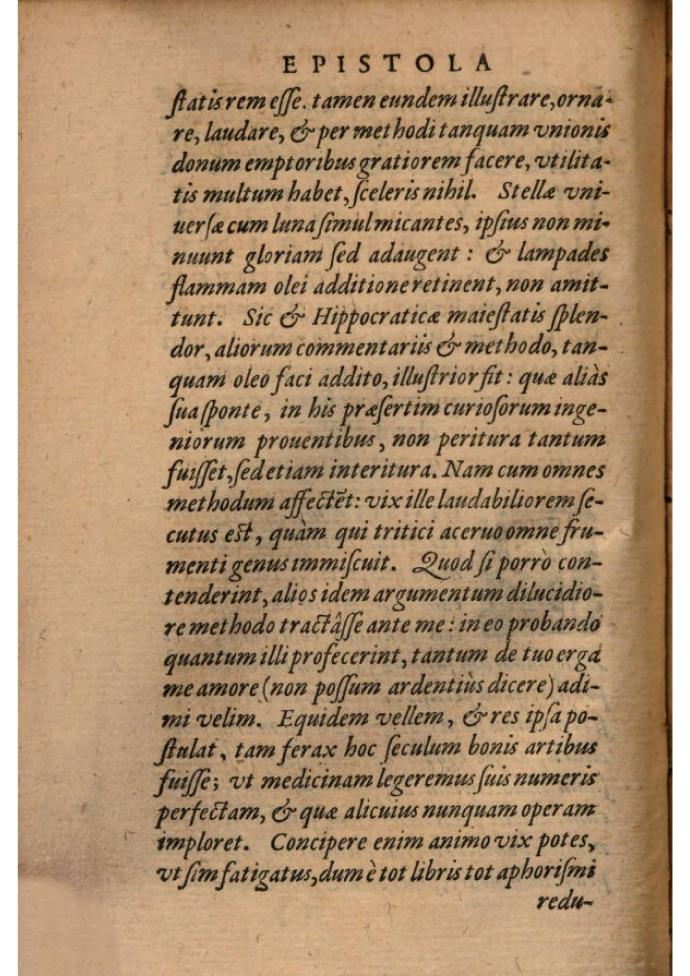 EPISTOLA
ſtatis rem eſſe. tamen eundem illuſtrare, orna-
re, laudare, & per methodi tanquam vnionis
donum emptoribus gratiorem facere, vtilita-
tis multum habet, ſceleris nihil. Stellæ vni-
uerſæ cum luna ſimul micantes, ipſius non mi-
nuunt gloriam ſed adaugent: & lampades
flammam olei additione retinent, non amit-
tunt. Sic & Hippocraticæ maieſtatis ſplen-
dor, aliorum commentariis & methodo, tan-
quam oleo faci addito, illuſtrior fit: quæ aliàs
ſua ſponte, in his præſertim curioſorum inge-
niorum prouentibus, non peritura tantum
fuiſſet, ſed etiam interitura. Nam cum omnes
methodum affectēt: vix ille laudabiliorem ſe-
cutus est, quàm qui tritici aceruo omne fru-
menti genus immiſcuit. Quod ſi porrò con-
tenderint, alios idem argumentum dilucidio-
re methodo tractâſſe ante me: in eo probando
quantum illi profecerint, tantum de tuo erga
me amore (non poſſum ardentiùs dicere) adi-
mi velim. Equidem vellem, & res ipſa po-
ſtulat, tam ferax hoc ſeculum bonis artibus
fuiſſe; vt medicinam legeremus ſuis numeris
perfectam, & quæ alicuius nunquam operam
imploret. Concipere enim animo vix potes,
vt ſim fatigatus, dum è tot libris tot aphoriſmi
redu-